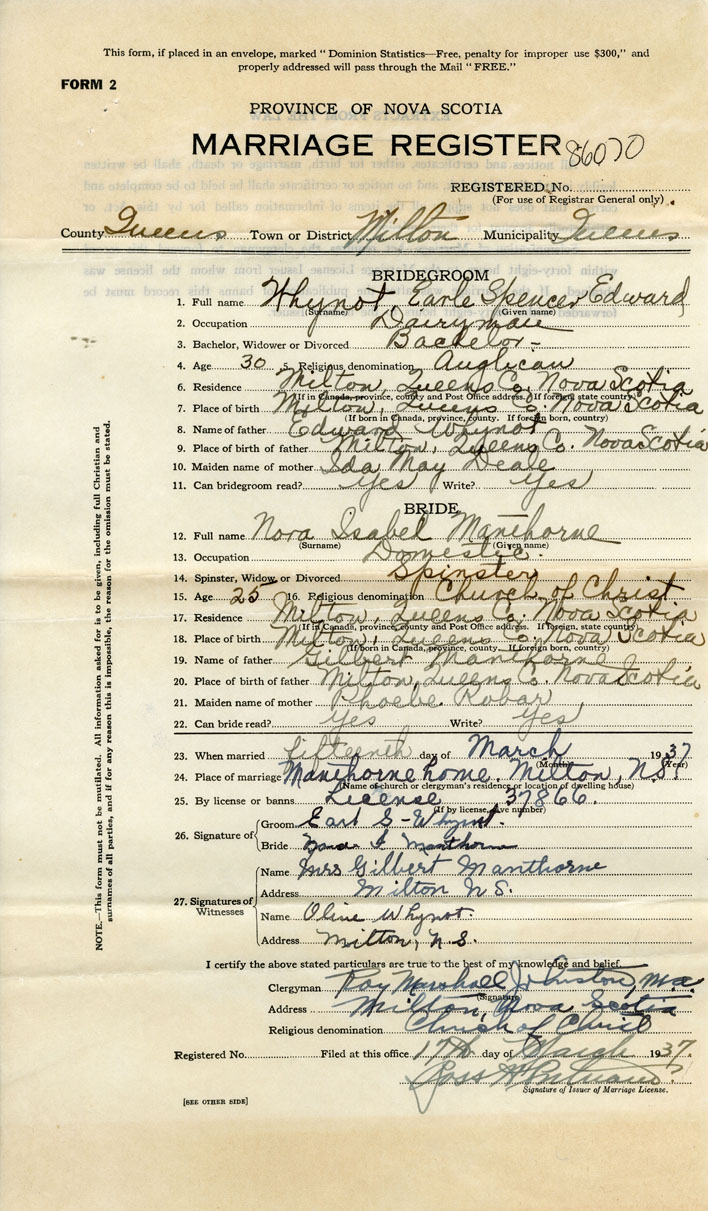 This form, if placed in an envelope, marked "Dominion Statistics—Free, penalty for improper use $300," and
properly addressed will pass through the Mail "FREE."
FORM 2
PROVINCE OF NOVA SCOTIA
MARRIAGE REGISTER 86070
REGISTERED No.
(For use of Registrar General only)
County Queens Town or District Milton Municipality Queens
BRIDEGROOM
1. Full name Whynot, Earle Spencer Edward
(Surname) (Given name)
2. Occupation Dairyman
3. Bachelor, Widower or Divorced Bachelor -
4. Age 30 5. Religious denomination Anglican
6. Residence Milton, Queens Co. Nova Scotia
(If in Canada, province, county and Post Office address. If foreign state country)
7. Place of birth Milton, Queens Co. Nova Scotia
(If born in Canada, province, county. If foreign born, country)
8. Name of father Edward Whynot
9. Place of birth of father Milton, Queens Co. Nova Scotia
10. Maiden name of mother Ida May Deale
11. Can bridegroom read? Yes Write? Yes
BRIDE
12. Full name Nora Isabel Manthorne
(Surname) (Given name)
13. Occupation Domestic.
14. Spinster, Widow or Divorced Spinster
15. Age 25 16. Religious denomination Church of Christ
17. Residence Milton, Queens Co. Nova Scotia
(If in Canada, province, county and Post Office address. If foreign, state country)
18. Place of birth Milton, Queens Co. Nova Scotia
(If born in Canada, province, county. If foreign born, country)
19. Name of father Gilbert Manthorne
20. Place of birth of father Milton, Queens Co. Nova Scotia
21. Maiden name of mother Phoebe Robar
22. Can bride read? Yes Write? Yes
23. When married fifteenth day of March 1937
(Month) (Year)
24. Place of marriage Manthorne home. Milton, N.S.
(Name of church or clergyman's residence or location of dwelling house)
25. By license or banns License 37866.
(If by license, give number)
26. Signature of
Groom Earl S. Whynot.
Bride Nora I. Manthorne
27. Signatures of Witnesses
Name Mrs Gilbert Manthorne
Address Milton N.S.
Name Oline Whynot.
Address Milton, N.S.
I certify the above stated particulars are true to the best of my knowledge and belief.
Clergyman Ray Marshall Johnston, M.A.
(Signature)
Address Milton, Nova Scotia
Religious denomination Church of Christ
Registered No. Filed at this office 17th day of 1937.
Signature of Issuer of Marriage License.
[SEE OTHER SIDE]
NOTE.—This form must not be mutilated. All information asked for is to be given, including full Christian and
surnames of all parties, and if for any reason this is impossible, the reason for the omission must be stated.